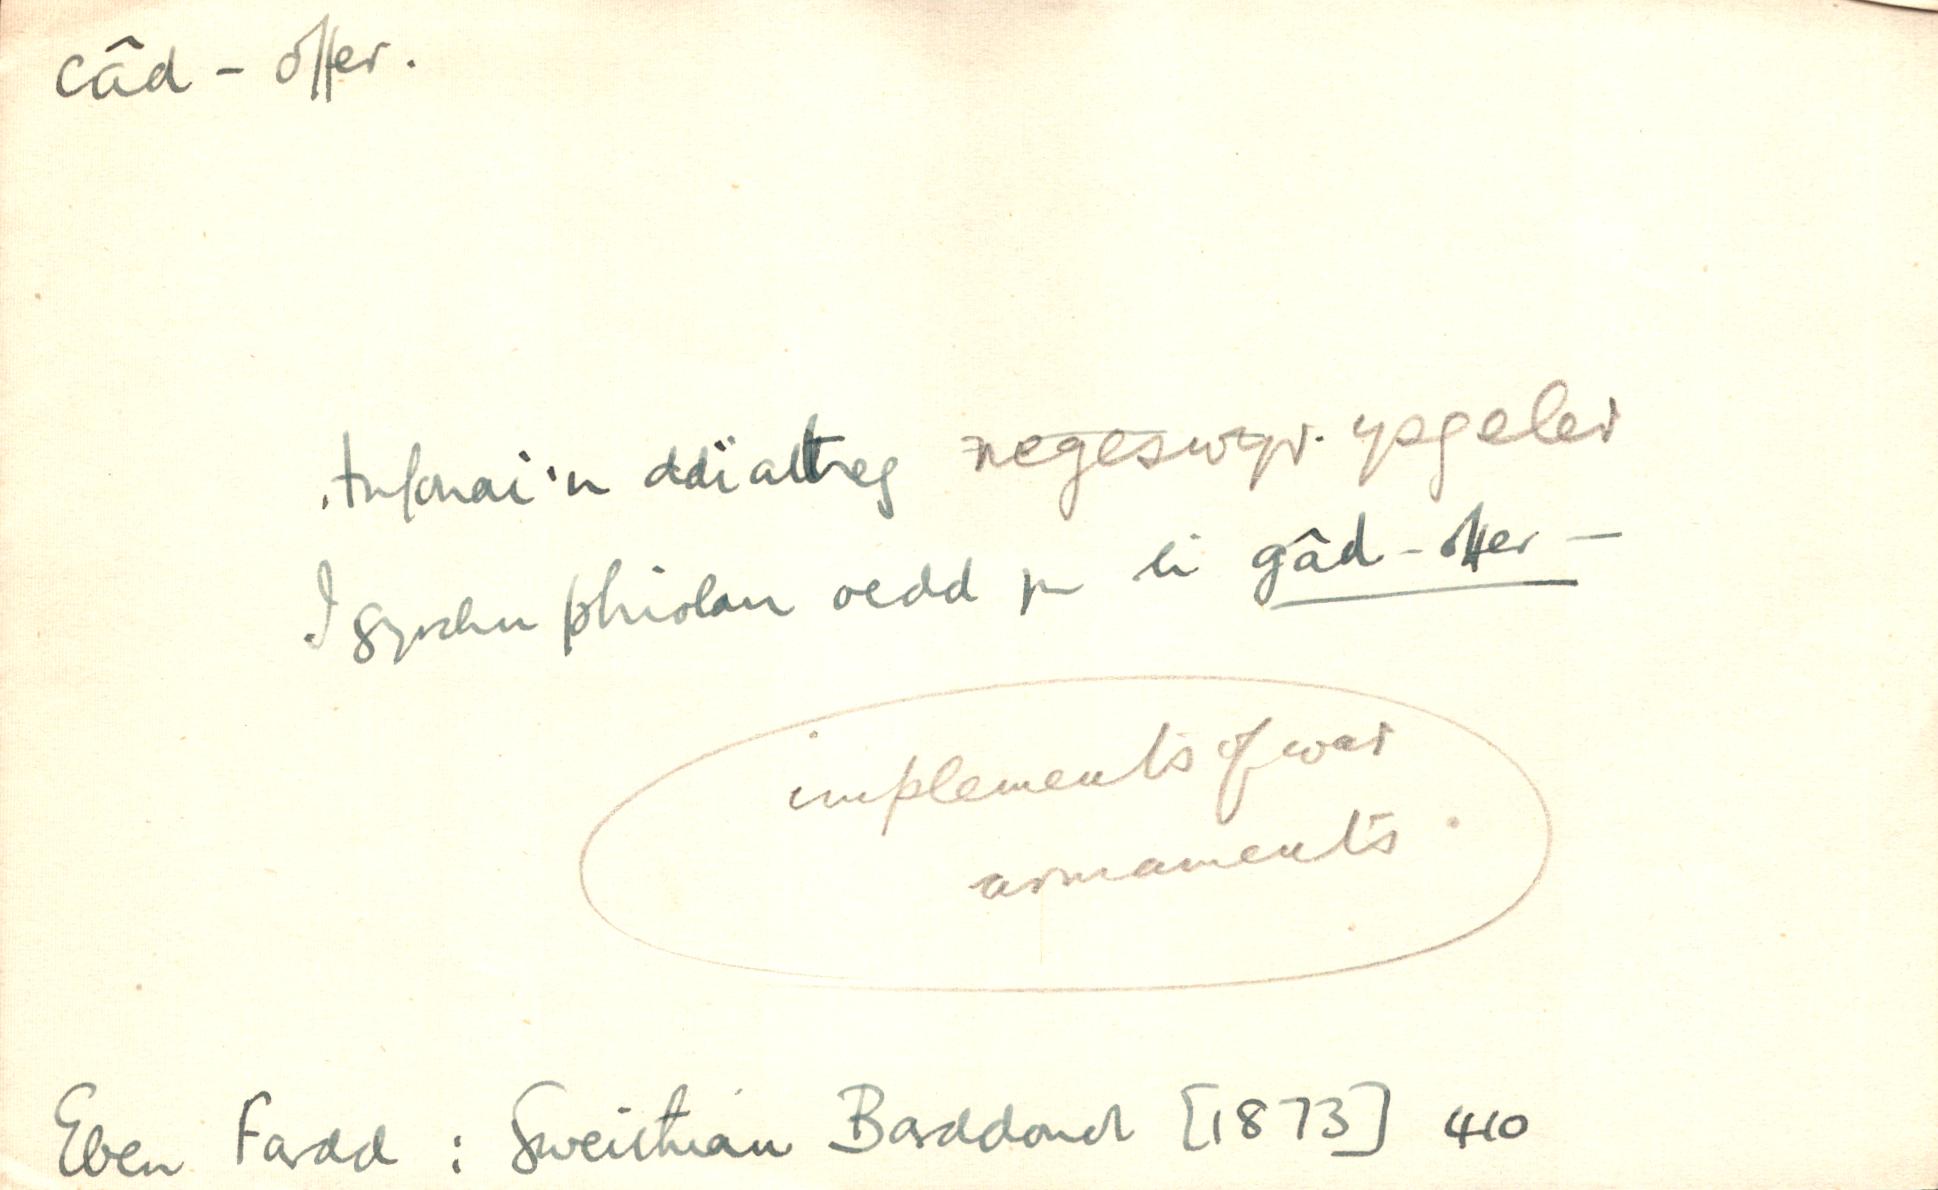 câd-offer.
Anfonai'n ddïattreg negeswyr ysgeler
I gyrchu phiolau oedd yn ei gâd-offer —
implements of war
armaments.
Eben Fardd : Gweithiau Barddonol [1873] 410